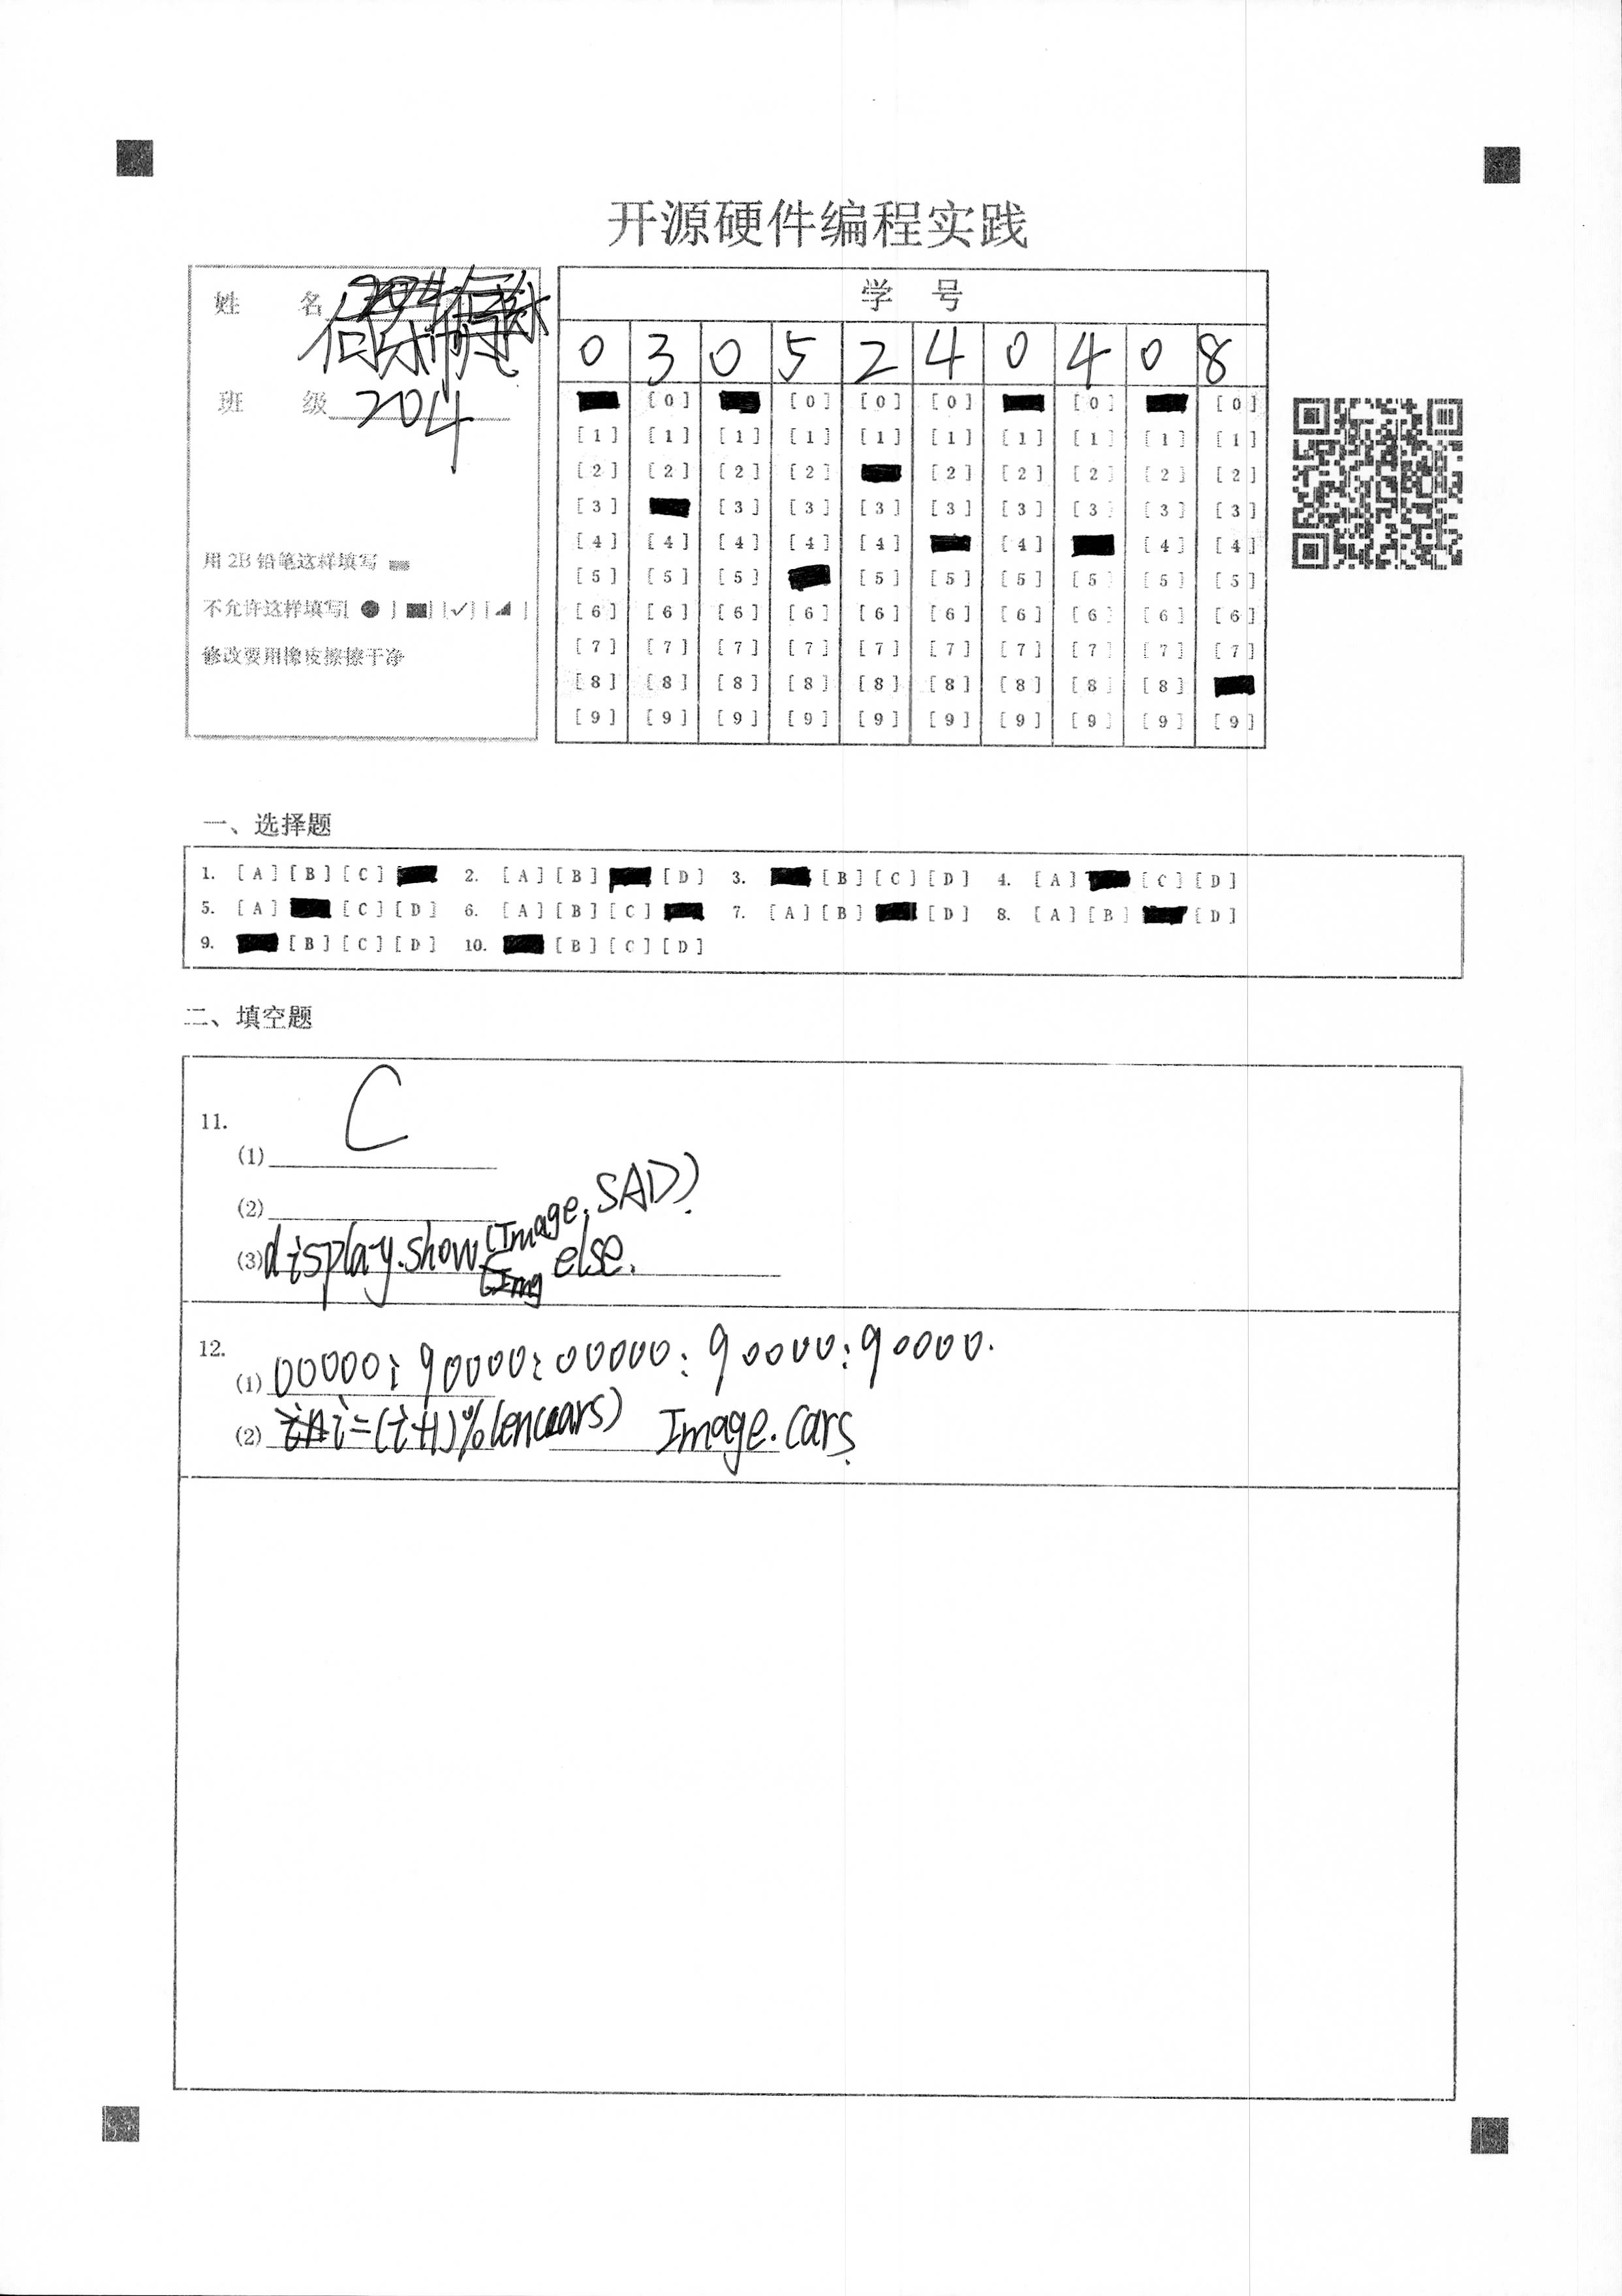 开源硬件编程实践
姓 名
班 级 204
用 2B 铅笔这样填写
不允许这样填写[ ● ] [■] [✓] [◢ ]
修改要用橡皮擦擦干净
学 号
0 3 0 5 2 4 0 4 0 8
[0] [0] [0] [0] [0] [0]
[1] [1] [1] [1] [1] [1] [1] [1] [1] [1]
[2] [2] [2] [2] [2] [2] [2] [2] [2]
[3] [3] [3] [3] [3] [3] [3] [3] [3]
[4] [4] [4] [4] [4] [4] [4] [4]
[5] [5] [5] [5] [5] [5] [5] [5] [5]
[6] [6] [6] [6] [6] [6] [6] [6] [6] [6]
[7] [7] [7] [7] [7] [7] [7] [7] [7] [7]
[8] [8] [8] [8] [8] [8] [8] [8] [8]
[9] [9] [9] [9] [9] [9] [9] [9] [9] [9]
一、选择题
1. [A] [B] [C] 2. [A] [B] [D] 3. [B] [C] [D] 4. [A] [C] [D]
5. [A] [C] [D] 6. [A] [B] [C] 7. [A] [B] [D] 8. [A] [B] [D]
9. [B] [C] [D] 10. [B] [C] [D]
二、填空题
11.
(1) C
(2)
(3) display.show(Image.SAD) else.
12.
(1) 00000:90000:00000:90000:90000.
(2) i=(i+1)%len(cars) Image.cars